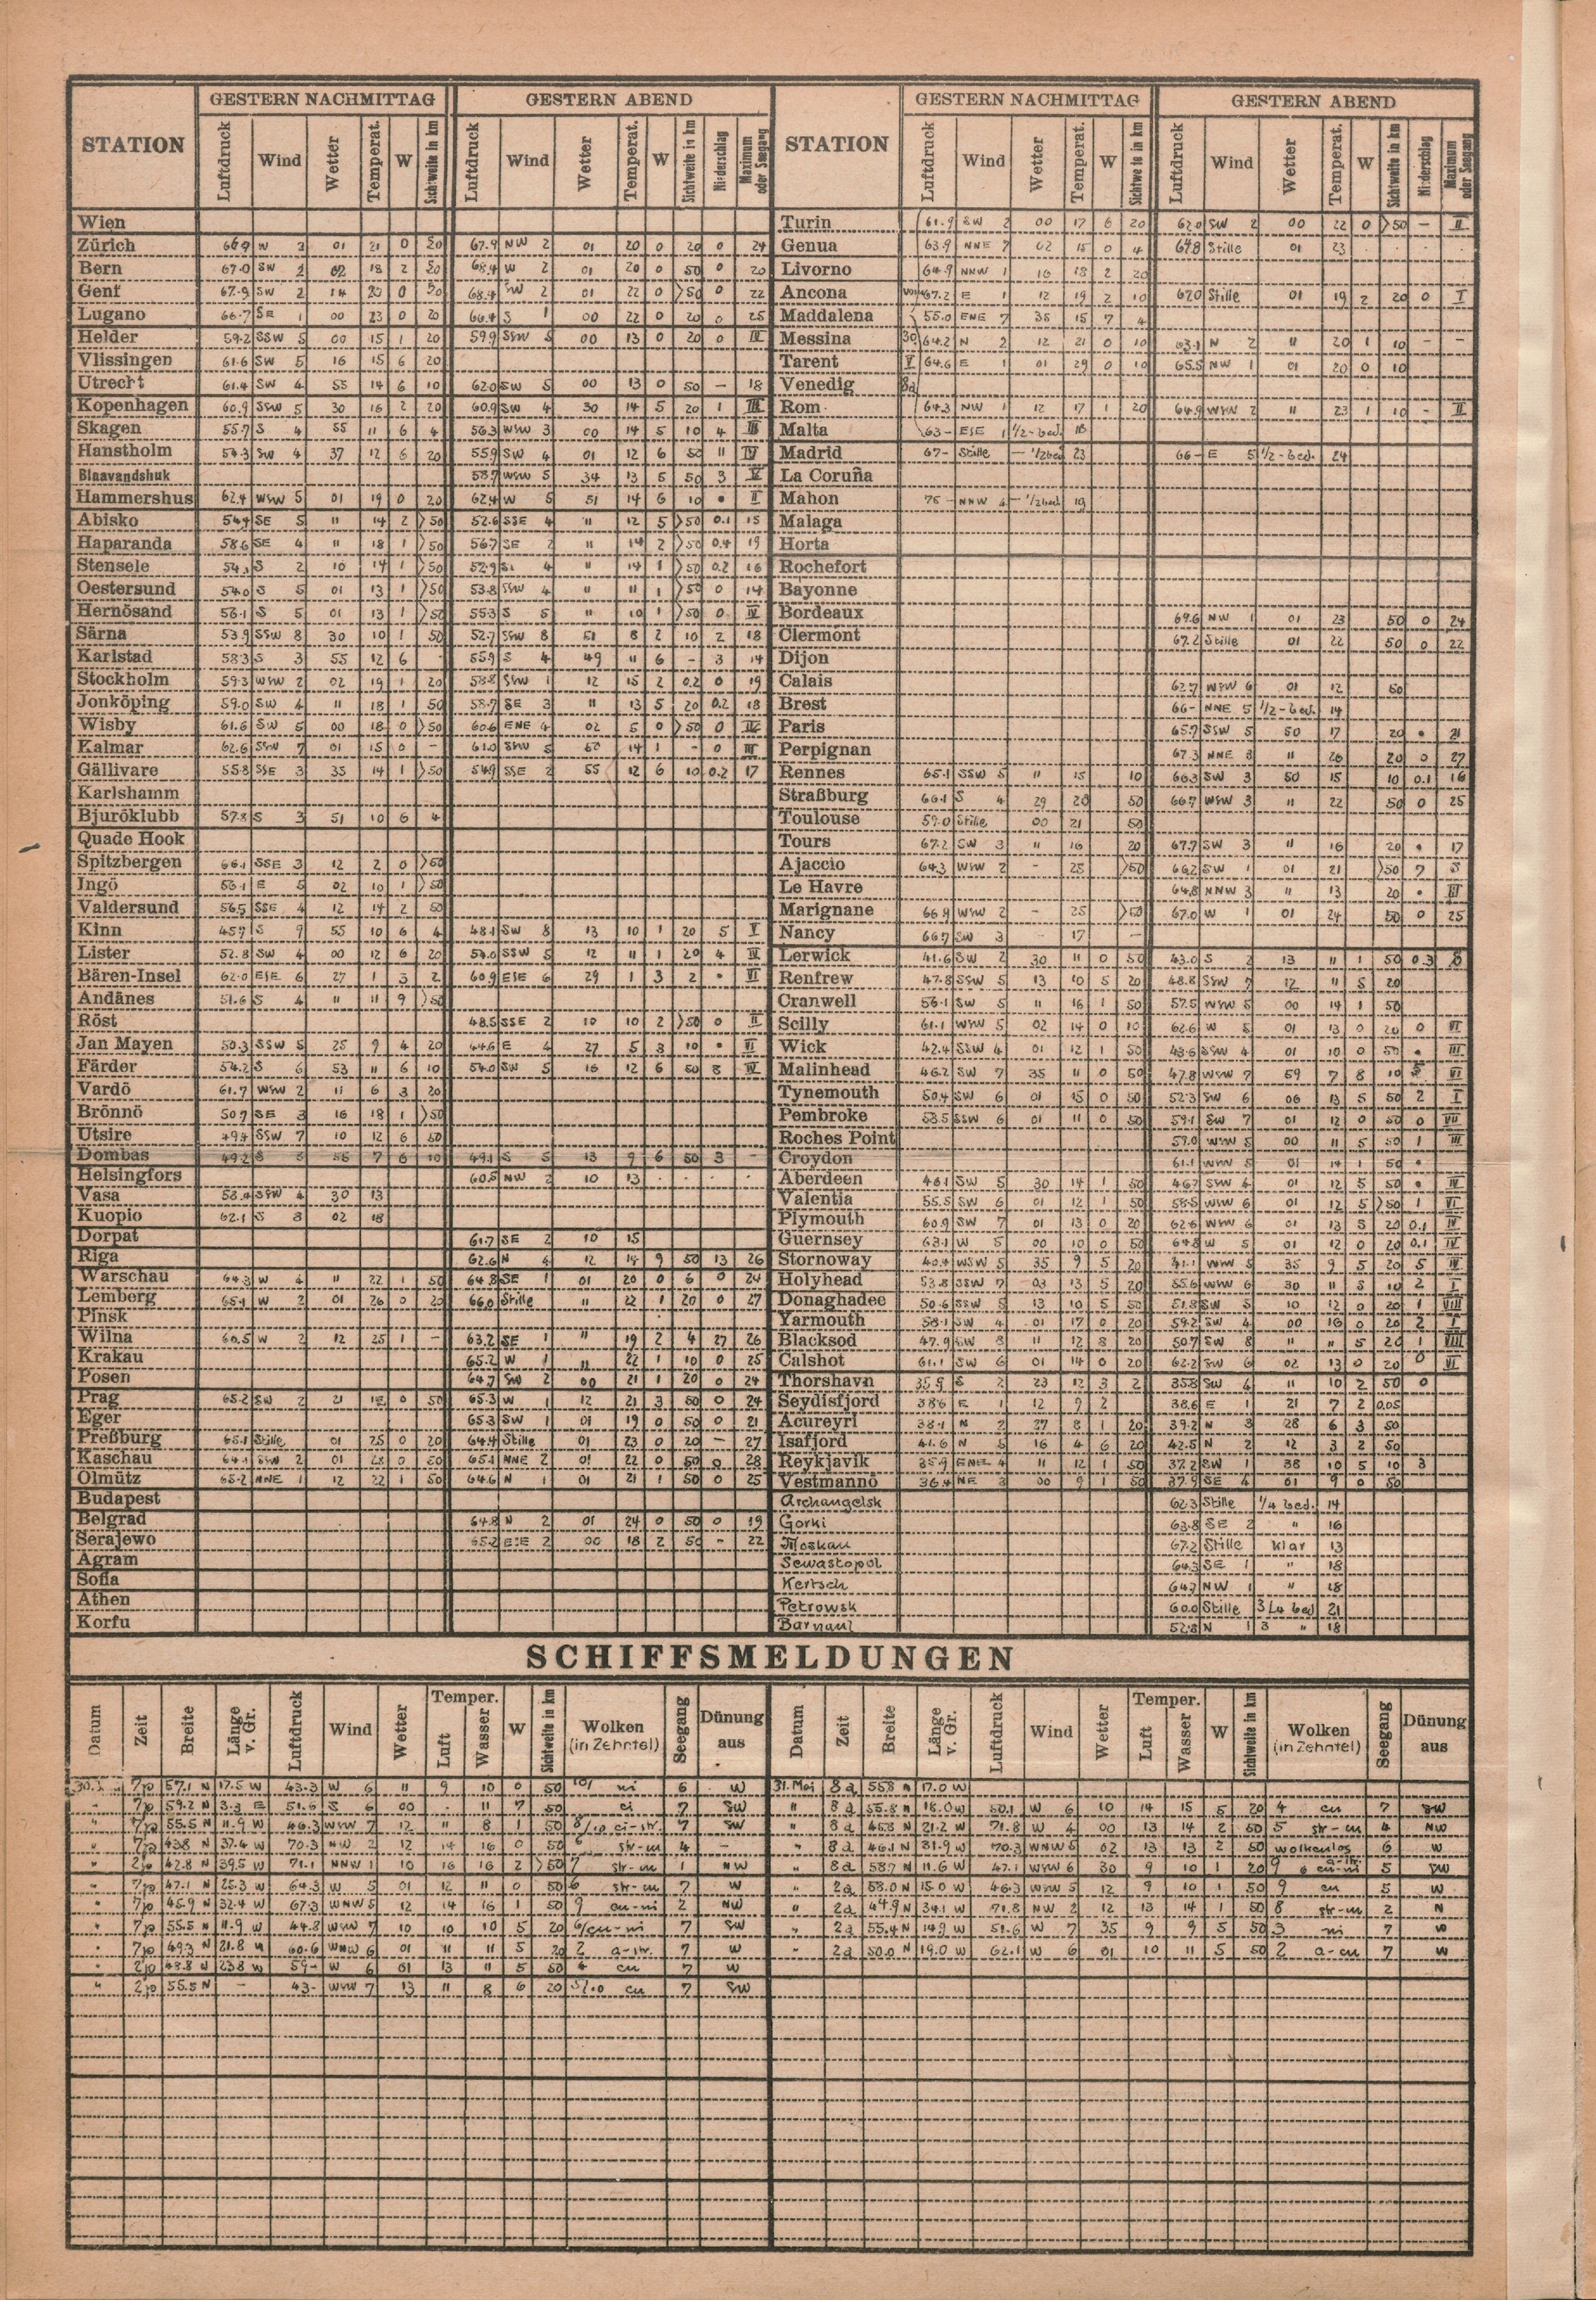 STATION GESTERN NACHMITTAG GESTERN ABEND
Luftdruck Wind Wetter Temperat. W Sichtweite in km Luftdruck Wind Wetter Temperat. W Sichtweite in km Niederschlag Maximum oder Seegang
Wien
Zürich 66.9 W 2 01 21 0 50 67.9 NW 2 01 20 0 20 0 24
Bern 67.0 SW 2 02 18 2 50 68.4 W 2 01 20 0 50 0 20
Genf 67.9 SW 2 14 20 0 50 68.4 SW 2 01 22 0 >50 0 22
Lugano 66.7 SE 1 00 23 0 20 66.4 S 1 00 22 0 20 0 25
Helder 59.2 SSW 5 00 15 1 20 59.9 SSW 5 00 13 0 20 0 III
Vlissingen 61.6 SW 5 16 15 6 20
Utrecht 61.4 SW 4 55 14 6 10 62.0 SW 5 00 13 0 50 — 18
Kopenhagen 60.9 SSW 5 30 16 2 20 60.9 SW 4 30 14 5 20 1 III
Skagen 55.7 S 4 55 11 6 4 56.3 WSW 3 00 14 5 10 4 III
Hanstholm 54.3 SW 4 37 12 6 20 55.9 SW 4 01 12 6 50 11 IV
Blaavandshuk 58.7 WSW 5 34 13 5 50 3 V
Hammershus 62.4 WSW 5 01 19 0 20 62.4 W 5 51 14 6 10 • II
Abisko 54.4 SE 5 " 14 2 >50 52.6 SSE 4 " 12 5 >50 0.1 15
Haparanda 58.6 SE 4 " 18 1 >50 56.7 SE 2 " 14 2 >50 0.4 19
Stensele S 2 10 14 1 >50 52.9 4 " 14 1 >50 0.2 16
Oestersund 54.0 S 5 01 13 1 >50 53.8 SSW 4 " 11 1 >50 0 14
Hernösand 56.1 S 5 01 13 1 >50 55.3 S 5 " 10 1 >50 0 IV
Särna 53.9 SSW 8 30 10 1 50 52.7 SSW 8 51 8 2 10 2 18
Karlstad 58.3 S 3 55 12 6 - 55.9 S 4 49 11 6 - 3 14
Stockholm 59.3 WSW 2 02 19 1 20 58.8 SSW 1 12 15 2 0.2 0 19
Jonköping 59.0 SW 4 " 18 1 50 58.7 SE 3 " 13 5 20 0.2 18
Wisby 61.6 SW 5 00 18 0 >50 60.6 ENE 4 02 5 0 >50 0 IV
Kalmar 62.6 SSW 7 01 15 0 - 61.0 SSW 5 50 14 1 - 0 III
Gällivare 55.8 SSE 3 35 14 1 >50 54.9 SSE 2 55 12 6 10 0.2 17
Karlshamm
Bjuröklubb 57.8 S 3 51 10 6 4
Quade Hook
Spitzbergen 66.1 SSE 3 12 2 0 >50
Ingö 56.1 E 5 02 10 1 >50
Valdersund 56.5 SSE 4 12 14 2 50
Kinn 45.7 S 9 55 10 6 4 48.1 SW 8 13 10 1 20 5 V
Lister 52.8 SW 4 00 12 6 20 54.0 SSW 5 12 11 1 20 4 IV
Bären-Insel 62.0 ESE 6 27 1 3 2 60.9 ESE 6 29 1 3 2 • VI
Andänes 51.6 S 4 " 11 9 >50
Röst 48.5 SSE 2 10 10 2 >50 0 II
Jan Mayen 50.3 SSW 5 25 9 4 20 44.6 E 4 27 5 3 10 • VI
Färder 54.2 S 6 53 11 6 10 54.0 SW 5 16 12 6 50 8 IV
Vardö 61.7 WSW 2 11 6 3 20
Brönnö 50.7 SE 3 16 18 1 >50
Utsire 49.4 SSW 7 10 12 6 50
Dombas 49.2 S 7 6 10 49.1 S 5 13 9 6 50 3 -
Helsingfors 60.5 NW 2 10 13
Vasa 58.4 SSW 4 30 13
Kuopio 62.1 S 3 02 18
Dorpat 61.7 SE 2 10 15
Riga 62.6 N 4 12 14 9 50 13 26
Warschau 64.3 W 4 " 22 1 50 64.8 SE 1 01 20 0 6 0 24
Lemberg 65.1 W 2 01 26 0 20 66.0 Stille " 22 1 20 0 27
Pinsk
Wilna 60.5 W 2 12 25 1 — 63.2 SE 1 " 19 2 4 27 26
Krakau 65.2 W 1 " 22 1 10 0 25
Posen 64.7 SW 2 00 21 1 20 0 24
Prag 65.2 SW 2 21 0 50 65.3 W 1 12 21 3 50 0 24
Eger 65.3 SW 1 01 19 0 50 0 21
Preßburg 65.1 Stille 01 25 0 20 64.4 Stille 01 23 0 20 — 27
Kaschau 64.1 SSW 2 01 0 50 65.1 NNE 2 01 22 0 50 0 28
Olmütz 65.2 NNE 1 12 22 1 50 64.6 N 1 01 21 1 50 0 25
Budapest
Belgrad 64.8 N 2 01 24 0 50 0 19
Serajewo 65.2 ESE 2 00 18 2 50 - 22
Agram
Sofia
Athen
Korfu
STATION GESTERN NACHMITTAG GESTERN ABEND
Luftdruck Wind Wetter Temperat. W Sichtweite in km Luftdruck Wind Wetter Temperat. W Sichtweite in km Niederschlag Maximum oder Seegang
Turin 61.9 SW 2 00 17 6 20 62.0 SW 2 00 22 0 >50 — II
Genua 63.9 NNE 7 02 15 0 4 64.8 Stille 01 23
Livorno 64.9 NNW 1 16 18 2 20
Ancona vom 67.2 E 1 12 19 2 10 67.0 Stille 01 19 2 20 0 I
Maddalena 55.0 ENE 7 35 15 7 4
Messina 30 64.2 N 2 12 21 0 10 63.1 N 2 " 20 1 10 - -
Tarent V 64.6 E 1 01 29 0 10 65.5 NW 1 01 20 0 10
Venedig 8a
Rom 64.3 NW 1 12 17 1 20 64.9 WSW 2 " 23 1 10 - II
Malta 63- ESE 1 1/2-bed. 18
Madrid 67- Stille — 1/2bed 23 66- E 5 1/2-bed. 24
La Coruña
Mahon 75- NNW 4 — 1/2bed 19
Malaga
Horta
Rochefort
Bayonne
Bordeaux 69.6 NW 1 01 23 50 0 24
Clermont 67.2 Stille 01 22 50 0 22
Dijon
Calais 62.7 WSW 6 01 12 50
Brest 66- NNE 5 1/2-bed. 14
Paris 65.7 SSW 5 50 17 20 • 21
Perpignan 67.3 NNE 3 " 26 20 0 27
Rennes 65.1 SSW 5 " 15 10 66.3 SW 3 50 15 10 0.1 16
Straßburg 66.1 S 4 29 20 50 66.7 WSW 3 " 22 50 0 25
Toulouse 59.0 Stille 00 21 50
Tours 67.2 SW 3 " 16 20 67.7 SW 3 " 16 20 • 17
Ajaccio 64.3 WSW 2 - 25 >50 66.2 SW 1 01 21 >50 ?
Le Havre 64.8 NNW 3 " 13 20 • III
Marignane 66.9 WSW 2 - 25 >50 67.0 W 1 01 24 50 0 25
Nancy 66.7 SW 3 - 17 -
Lerwick 41.6 SW 2 30 11 0 50 43.0 S 2 13 11 1 50 0.3
Renfrew 47.8 SSW 5 13 10 5 20 48.8 SSW 7 12 11 5 20
Cranwell 56.1 SW 5 11 16 1 50 57.5 WSW 5 00 14 1 50
Scilly 61.1 WSW 5 02 14 0 10 62.6 W 5 01 13 0 20 0 VI
Wick 42.4 SSW 4 01 12 1 50 43.6 SSW 4 01 10 0 50 • III
Malinhead 46.2 SW 7 35 11 0 50 47.8 WSW 7 59 7 8 10 VI
Tynemouth 50.4 SW 6 01 15 0 50 52.3 SW 6 06 13 5 50 2 I
Pembroke 58.5 SSW 6 01 11 0 50 59.1 SW 7 01 12 0 50 0 VII
Roches Point 57.0 WSW 5 00 11 5 50 1 III
Croydon 61.1 WSW 5 01 14 1 50 •
Aberdeen 46.1 SW 5 30 14 1 50 46.7 SSW 4 01 12 5 50 • IV
Valentia 55.5 SW 6 01 12 1 50 58.5 WSW 6 01 12 5 >50 1 VI
Plymouth 60.9 SW 7 01 13 0 20 62.6 WSW 6 01 13 5 20 0.1 IV
Guernsey 63.1 W 5 00 10 0 50 64.8 W 5 01 12 0 20 0.1 IV
Stornoway 40.4 WSW 5 35 9 5 20 41.1 WSW 5 35 9 5 20 5 IV
Holyhead 53.8 SSW 7 03 13 5 20 55.6 WSW 6 30 11 5 10 2 I
Donaghadee 50.6 SSW 5 13 10 5 50 51.8 SW 5 10 12 0 20 1 VIII
Yarmouth 58.1 SW 4 01 17 0 20 59.2 SW 4 00 16 0 20 2 I
Blacksod 47.9 SW 8 11 12 8 20 50.7 SW 8 " 11 5 20 1 VIII
Calshot 61.1 SW 6 01 14 0 20 62.2 SW 6 02 13 0 20 0 VI
Thorshavn 35.9 S 2 23 12 3 2 35.8 SW 4 " 10 2 50 0
Seydisfjord 38.6 E 1 12 9 2 38.6 E 1 21 7 2 0.05
Acureyri 38.1 N 2 27 8 1 20 39.2 N 3 28 6 3 50
Isafjord 41.6 N 5 16 4 6 20 42.5 N 2 12 3 2 50
Reykjavik 35.9 ENE 4 11 12 1 50 37.2 SW 1 38 10 5 10 3
Vestmannö 36.4 NE 3 00 9 1 50 37.9 SE 4 01 9 0 50
Archangelsk 62.3 Stille 1/4 bed. 14
Gorki 63.8 SE 2 " 16
Moskau 67.2 Stille klar 13
Sewastopol 64.3 SE 1 " 18
Kertsch 64.7 NW 1 " 18
Petrowsk 60.0 Stille 3/4 bed 21
Barnaul 52.8 N 1 3 " 18
SCHIFFSMELDUNGEN
Datum Zeit Breite Länge v. Gr. Luftdruck Wind Wetter Temper. Luft Wasser W Sichtweite in km Wolken (in Zehntel) Seegang Dünung aus
30. 7p 57.1 N 17.5 W 43.3 W 6 11 9 10 0 50 10/ ni 6 W
" 7p 59.2 N 3.3 E 51.6 S 6 00 . 11 7 50 ci 7 SW
" 7p 55.5 N 11.9 W 46.3 WSW 7 12 11 8 1 50 8/10 ci-str. 7 SW
" 7p 43.8 N 37.4 W 70.3 NW 2 12 14 16 0 50 6 str-cu 4 -
" 2p 42.8 N 39.5 W 71.1 NNW 1 10 16 16 2 >50 7 str-cu 1 NW
" 7p 47.1 N 25.3 W 64.3 W 5 01 12 11 0 50 6 str-cu 7 W
" 7p 45.9 N 32.4 W 67.3 WNW 5 12 14 16 1 50 9 cu-ni 2 NW
" 7p 55.5 N 11.9 W 44.8 WSW 7 10 10 10 5 20 6/cu-ni 7 SW
" 7p 49.3 N 21.8 W 60.6 WNW 6 01 11 11 5 20 2 a-str. 7 W
" 2p 48.8 N 23.8 W 59- W 6 01 13 11 5 50 4 cu 7 W
" 2p 55.5 N - 43- WSW 7 13 11 8 6 20 5/10 cu 7 SW
Datum Zeit Breite Länge v. Gr. Luftdruck Wind Wetter Temper. Luft Wasser W Sichtweite in km Wolken (in Zehntel) Seegang Dünung aus
31. Mai 8a 55.8 N 17.0 W
" 8a 55.8 N 18.0 W 50.1 W 6 10 14 15 5 20 4 cu 7 SW
" 8a 45.8 N 21.2 W 71.8 W 4 00 13 14 2 50 5 str-cu 4 NW
" 8a 46.1 N 31.9 W 70.3 WNW 5 02 13 13 2 50 wolkenlos 6 W
" 8a 58.7 N 11.6 W 47.1 WSW 6 30 9 10 1 20 9 a-str. 6 cu-ni 5 SW
" 2a 58.0 N 15.0 W 46.3 WSW 5 12 9 10 1 50 9 cu 5 W
" 2a 44.9 N 34.1 W 71.8 NW 2 12 13 14 1 50 8 str-cu 2 N
" 2a 55.4 N 14.9 W 51.6 W 7 35 9 9 5 50 3 ni 7 W
" 2a 50.0 N 19.0 W 62.1 W 6 01 10 11 5 50 2 a-cu 7 W